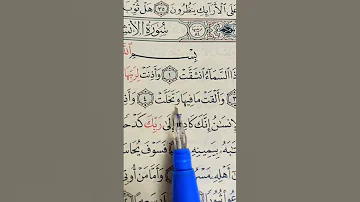 عَلَى ٱلْأَرَآئِكِ يَنظُرُونَ ٣٥ هَلْ ثُوِّبَ
سُورَةُ الانشـ
بِسْمِ
ذَا ٱلسَّمَآءُ ٱنشَقَّتْ ١ وَأَذِنَتْ لِرَبِّهَا
٣ وَأَلْقَتْ مَا فِيهَا وَتَخَلَّتْ ٤ وَأَذِ
لْإِنسَٰنُ إِنَّكَ كَادِحٌ إِلَىٰ رَبِّكَ كَدْحًا
بَهُۥ بِيَمِينِهِۦ فَسَوْفَ
أَهْلِهِۦ مَسْرُ وَأَمَّا مَنْ أُوتِىَ